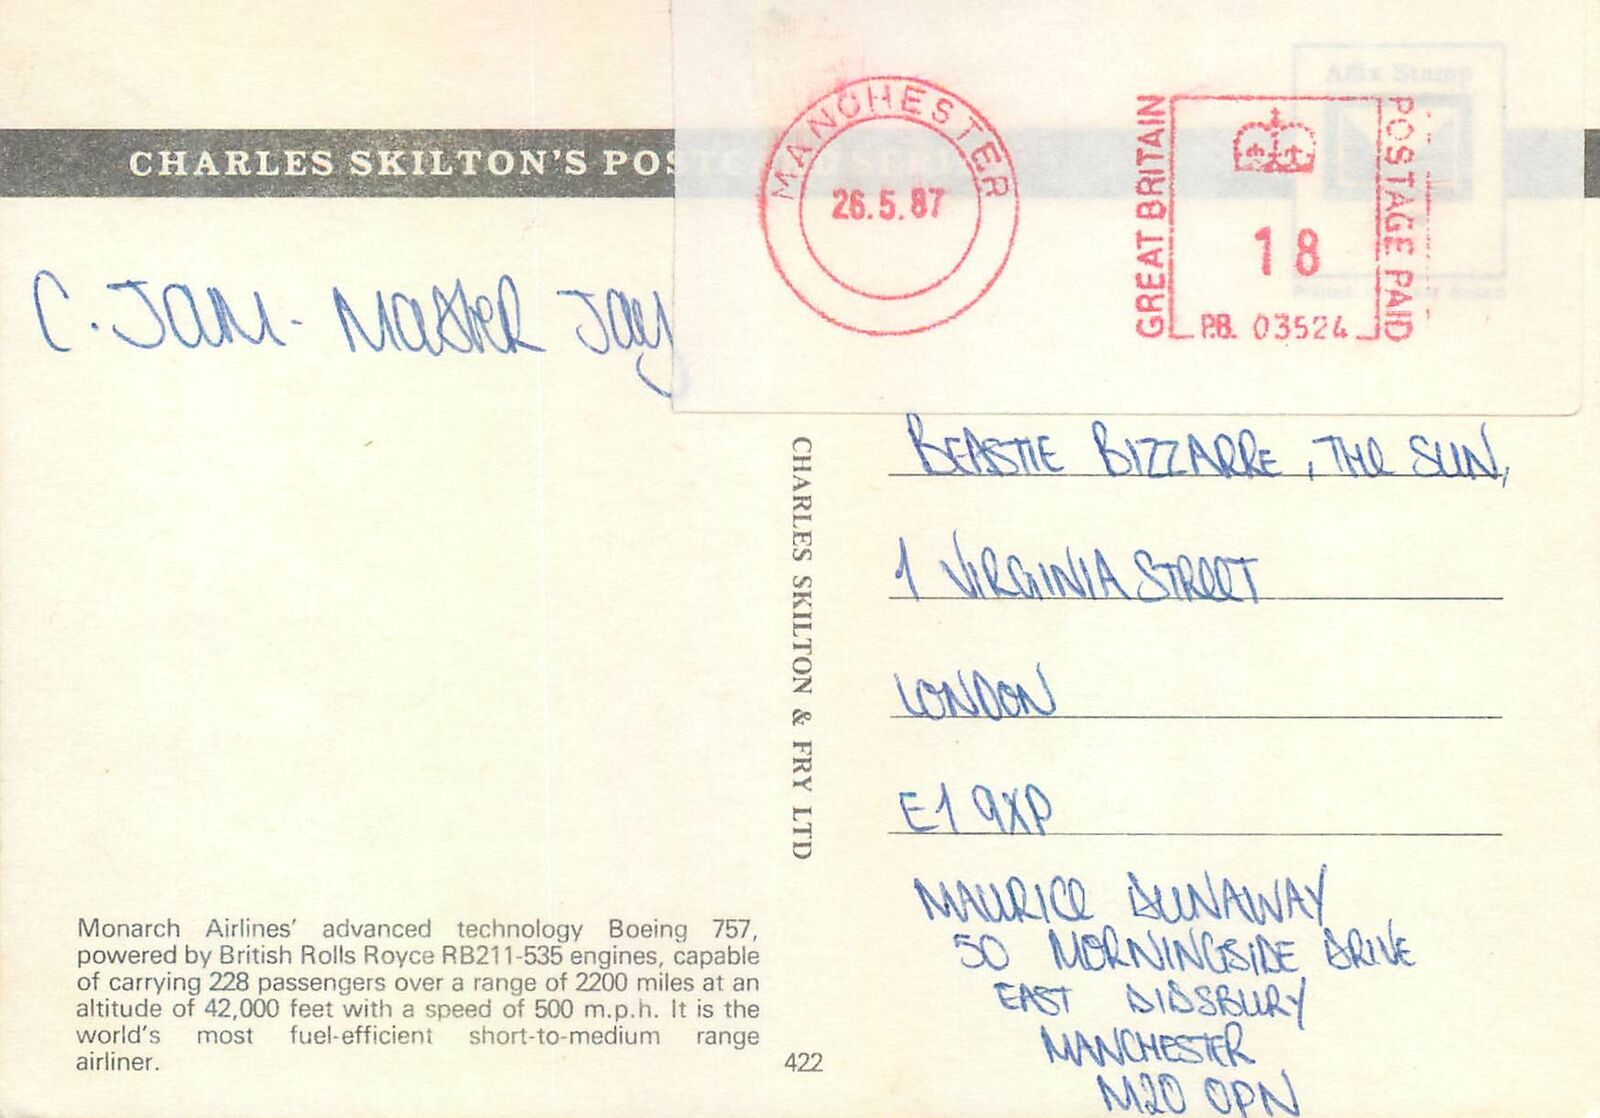 CHARLES SKILTON'S POSTCARD SERIES
MANCHESTER
26.5.87
GREAT BRITAIN
18
P.B. 03524
POSTAGE PAID
Affix Stamp
C. JAM- MASTER JAY
CHARLES SKILTON & FRY LTD
BEASTIE BIZZARRE, THE SUN,
1 VIRGINIA STREET
LONDON
E1 9XP
MAURICE DUNAWAY
50 MORNINGSIDE DRIVE
EAST DIDSBURY
MANCHESTER
M20 0PN
Monarch Airlines' advanced technology Boeing 757,
powered by British Rolls Royce RB211-535 engines, capable
of carrying 228 passengers over a range of 2200 miles at an
altitude of 42,000 feet with a speed of 500 m.p.h. It is the
world's most fuel-efficient short-to-medium range
airliner.
422